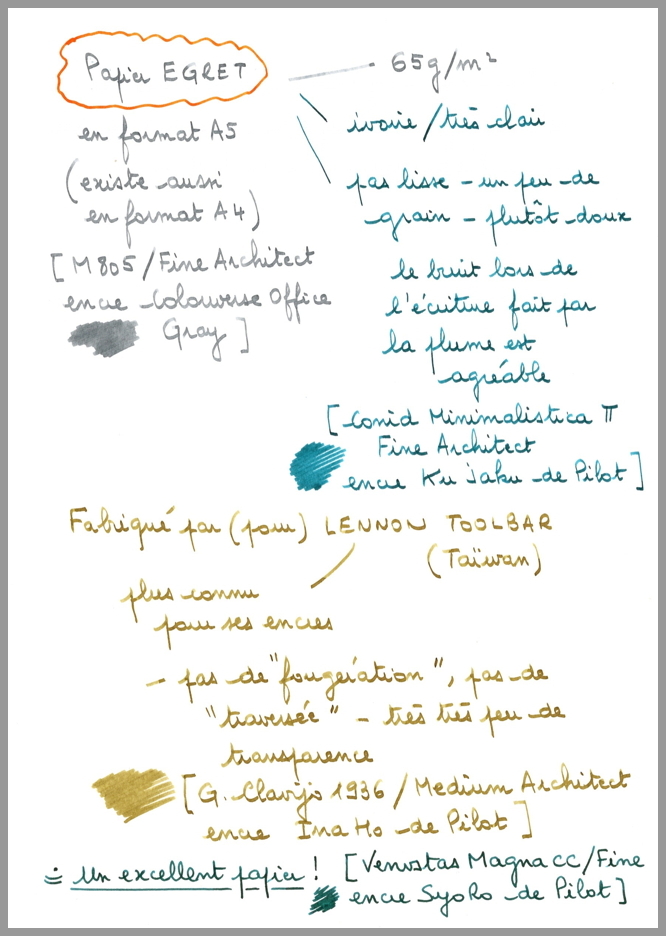 Papier EGRET
65g/m²
en format A5
(existe aussi
en format A4)
[M805/Fine Architect
encre Colorverse Office
Gray]
ivoire/très clair
pas lisse - un peu de
grain - plutôt doux
le bruit lors de
l'écriture fait par
la plume est
agréable
[Conid Minimalistica π
Fine Architect
encre Ku Jaku de Pilot]
Fabriqué par (pour) LENNON TOOLBAR
(Taïwan)
plus connu
pour ses encres
- pas de "fougeration", pas de
"traversée" - très très peu de
transparence
[G. Clavijo 1936/Medium Architect
encre Ina Ho de Pilot]
Un excellent papier !
[Venvstas Magna CC/Fine
encre Syo Ro de Pilot]